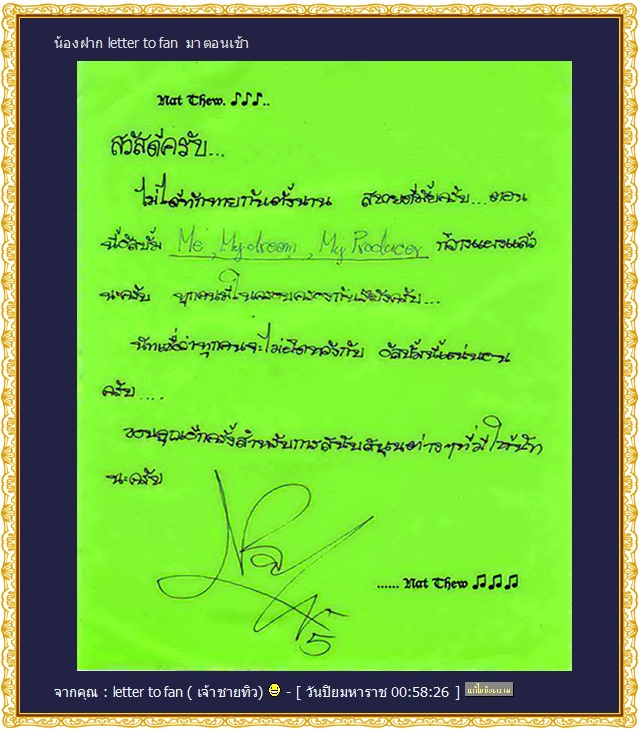 น้องฝาก letter to fan มาตอนเช้า
Nat Thew. ♪♪♪..
สวัสดีครับ...
ไม่ได้ทักทายกันตั้งนาน สบายดีมั้ยครับ...ตอน
นี้อัลบั้ม Me, My dream, My Producer ก็วางแผงแล้ว
นะครับ ทุกคนมีไว้ครอบครองกันรึยังครับ...
นัทเชื่อว่าทุกคนจะไม่ผิดหวังกับ อัลบั้มนี้แน่นอน
ครับ....
ขอบคุณอีกครั้งสำหรับการสนับสนุนต่างๆที่มีให้นัท
นะครับ
...... Nat Thew ♫♫♫
จากคุณ : letter to fan ( เจ้าชายทิว) - [ วันปิยมหาราช 00:58:26 ] แก้ไขข้อความ